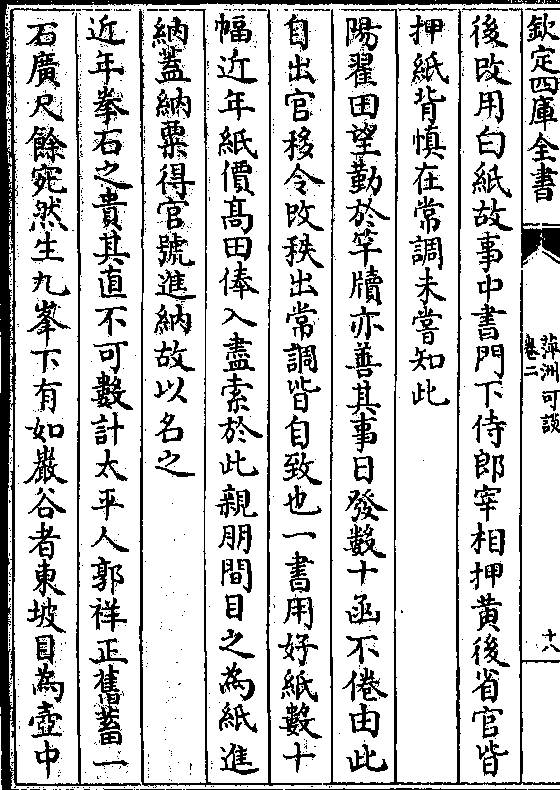 欽定四庫全書
萍洲可談
卷二
十八
後改用白紙故事中書門下侍郎宰相押黄後省官皆
押紙背慎在常調未嘗知此
陽翟田望勤於竿牘亦善其事日發數十函不倦由此
自出官移令改秩出常調皆自致也一書用好紙數十
幅近年紙價髙田俸入盡索於此親朋間目之為紙進
納蓋納粟得官號進納故以名之
近年拳石之貴其直不可數計太平人郭祥正舊蓄一
石廣尺餘宛然生九峯下有如巖谷者東坡目為壺中